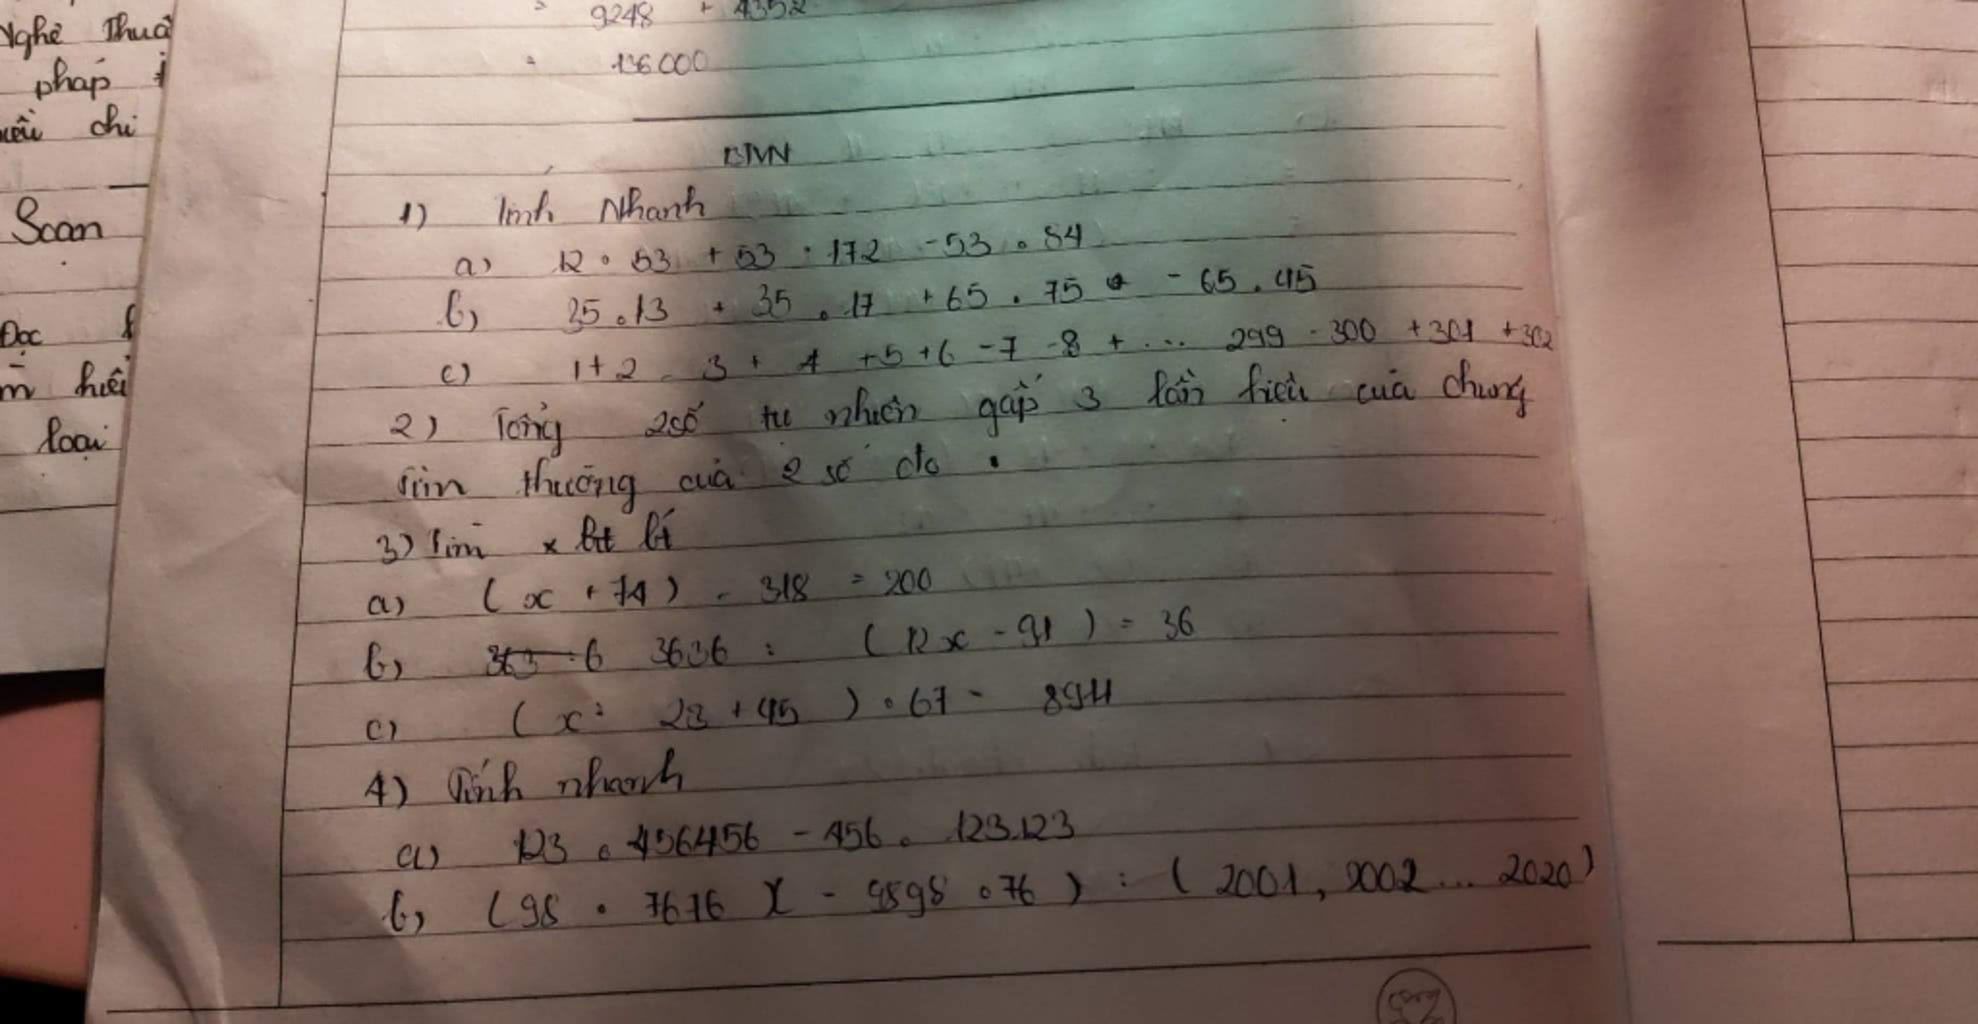 Nghệ Thuậ
pháp
chi
Soạn
Đọc
loại
= 9248 + 4352
= 136000
BTVN
1) Tính Nhanh
a) 12 . 53 + 53 . 172 - 53 . 84
b) 35 . 13 + 35 . 17 + 65 . 75 - 65 . 45
c) 1 + 2 - 3 + 4 + 5 + 6 - 7 - 8 + ... 299 - 300 + 301 + 302
2) Tổng 2 số tự nhiên gấp 3 lần hiệu của chúng
Tìm thương của 2 số đó .
3) Tìm x bt
a) (x + 74) - 318 = 200
b) 3636 : (12x - 91) = 36
c) (x : 23 + 45) . 67 = 8911
4) Tính nhanh
a) 123 . 456456 - 456 . 123.123
b) (98 . 7676 - 9898 . 76) : (2001, 2002 ... 2020)